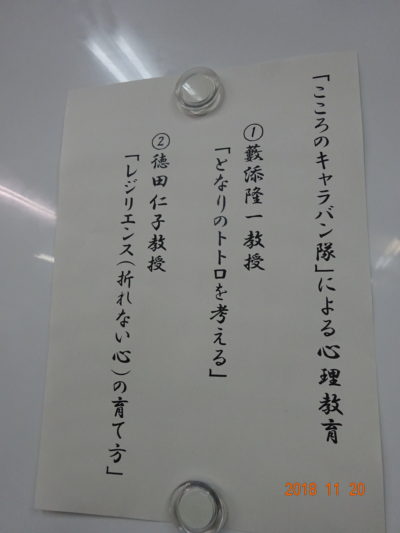 「こころのキャラバン隊」による心理教育
①藪添隆一教授
「となりのトトロを考える」
②徳田仁子教授
「レジリエンス（折れない心）の育て方」
2018 11 20